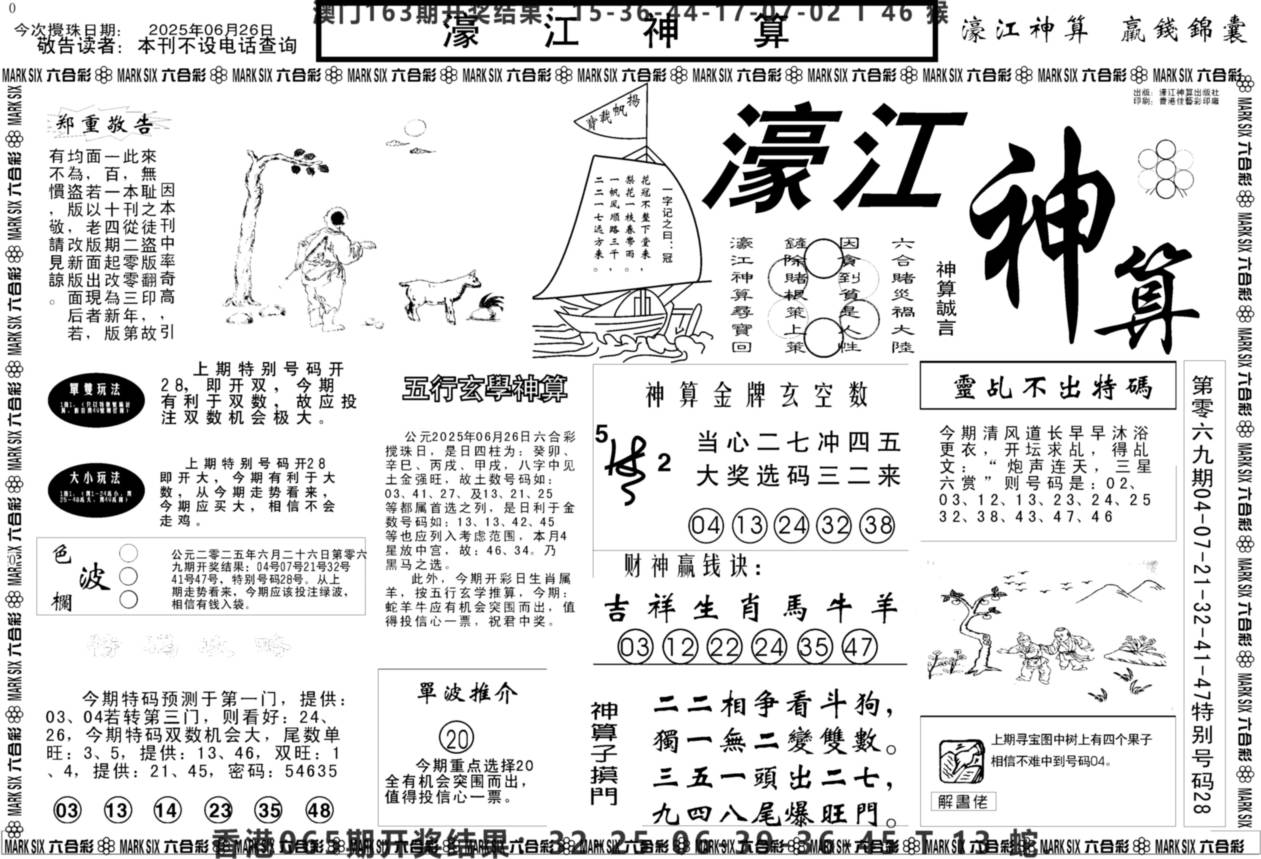 0
澳门163期开奖结果：15-36-44-17-07-02 T 46 猴
今次攪珠日期： 2025年06月26日
敬告读者：本刊不设电话查询
濠 江 神 算
濠江神算 赢錢錦囊
MARK SIX 六合彩
出版：濠江神算出版社
印刷：香港佳藝彩印廠
郑重敬告
因本刊中率奇高，引
來無耻之徒盜版翻印故
此，一本刊從二零零三年，第
一百十四期起改為新版
面，若以老版面出現者，
均為盜版，改新版面后若
有不慣，敬請見諒。
扬帆载财
一字记之曰：冠
花冠不整下堂来，
梨花一枝春带雨。
一帆风顺路三千，
二二一七远方来。
濠江
神
算
神算誠言
六合賭災禍大陸
因貪到貧是人性
鏟除賭根菜上菜
濠江神算尋寶回
單雙玩法
上期特别号码开
28，即开双，今期
有利于双数，故应投
注双数机会极大。
大小玩法
上期特别号码开28
即开大，今期有利于大
数，从今期走势看来，
今期应买大，相信不会
走鸡。
色
波
欄
公元二零二五年六月二十六日第零六
九期开奖结果：04号07号21号32号
41号47号，特别号码28号。从上
期走势看来，今期应该投注绿波，
相信有钱入袋。
特碼攻略
今期特码预测于第一门，提供：
03、04若转第三门，则看好：24、
26，今期特码双数机会大，尾数单
旺：3、5，提供：13、46，双旺：1
、4，提供：21、45，密码：54635
03 13 14 23 35 48
五行玄學神算
公元2025年06月26日六合彩
搅珠日，是日四柱为：癸卯、
辛巳、丙戌、甲戌，八字中见
土金强旺，故土数号码如：
03、41、27、及13、21、25
等都属首选之列，是日利于金
数号码如：13、13、42、45
等也应列入考虑范围，本月4
星放中宫，故：46、34。乃
黑马之选。
此外，今期开彩日生肖属
羊，按五行玄学推算，今期：
蛇羊牛应有机会突围而出，值
得投信心一票，祝君中奖。
單波推介
20
今期重点选择20
全有机会突围而出，
值得投信心一票。
神算金牌玄空数
5
2
当心二七冲四五
大奖选码三二来
04 13 24 32 38
财神赢钱诀：
吉祥生肖馬牛羊
03 12 22 24 35 47
神算子摸門
二二相争看斗狗，
獨一無二變雙數。
三五一頭出二七，
九四八尾爆旺門。
靈乩不出特碼
今期清风道长早早沐浴
更衣，开坛求乩，得乱
文：“炮声连天，三星
六赏”则号码是：02、
03、12、13、23、24、25
32、38、43、47、46
上期寻宝图中树上有四个果子
相信不难中到号码04。
解畫佬
第零六九期04-07-21-32-41-47特别号码28
香港065期开奖结果：32-25-06-39-36-45 T 13 蛇
MARK SIX 六合彩